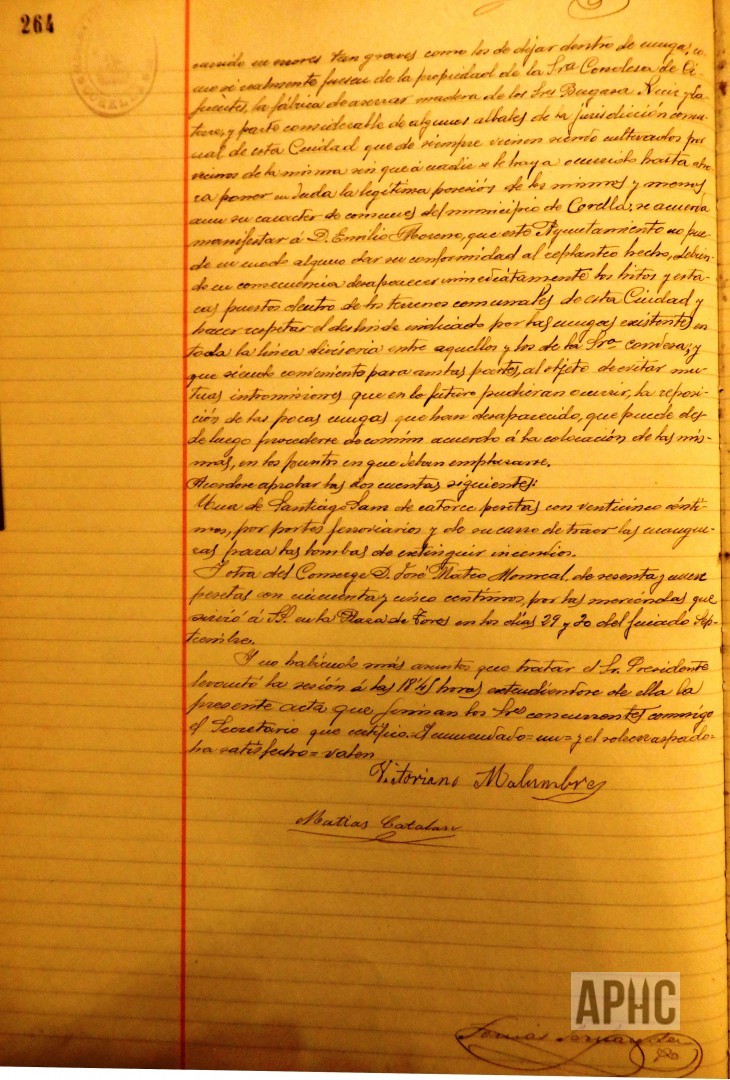 264
currido en errores tan graves como los de dejar dentro de mugas, co-
mo si realmente fuesen de la propiedad de la Sra Condesa de Ci-
fuentes, la fábrica de aserrar madera de los Sres Bugasa Ruiz y La-
torre, y parte considerable de algunos albales de la jurisdicción comu-
nal de esta Ciudad que de siempre vienen siendo cultivados por
vecinos de la misma sin que á nadie se le haya ocurrido hasta aho-
ra poner en duda la legítima posesión de los mismos y menos
aun su caracter de comunes del municipio de Corella; se acuerda
manifestar á D. Emilio Moreno, que este Ayuntamiento no pue-
de en modo alguno dar su conformidad al replanteo hecho, debien-
do en consecuencia desaparecer inmediatamente los hitos y esta-
cas puestos dentro de los terrenos comunales de esta Ciudad y
hacer respetar el deslinde indicado por las mugas existentes en
toda la línea divisoria entre aquellos y los de la Sra condesa; y
que siendo conveniente para ambas partes, al objeto de evitar mu-
tuas intromisiones que en lo futuro pudieran ocurrir, la reposi-
ción de las pocas mugas que han desaparecido, que puede des-
de luego procederse de común acuerdo á la colocación de las mis-
mas, en los puntos en que deban emplazarse.
Acordose aprobar las dos cuentas siguientes:
Una de Santiago Sanz de catorce pesetas con venticinco cénti-
mos, por portes ferroviarios y de su carro de traer las mangue-
ras para las bombas de extinguir incendios.
Y otra del Conserge D. José Mateo Monreal, de sesenta y nueve
pesetas con cincuenta y cinco centimos, por las meriendas que
sirvió á SS. en la Plaza de Toros en los días 29 y 30 del finado Sep-
tiembre.
Y no habiendo más asuntos que tratar el Sr. Presidente
levantó la sesión á las 18'45 horas extendiendose de ella la
presente acta que firman los Sres concurrentes conmigo
el Secretario que certifico.= Enmendado = un = y el sobreraspado =
ha satisfecho = valen
Victoriano Malumbres
Matías Catalan
APHC
Tomás Fernández